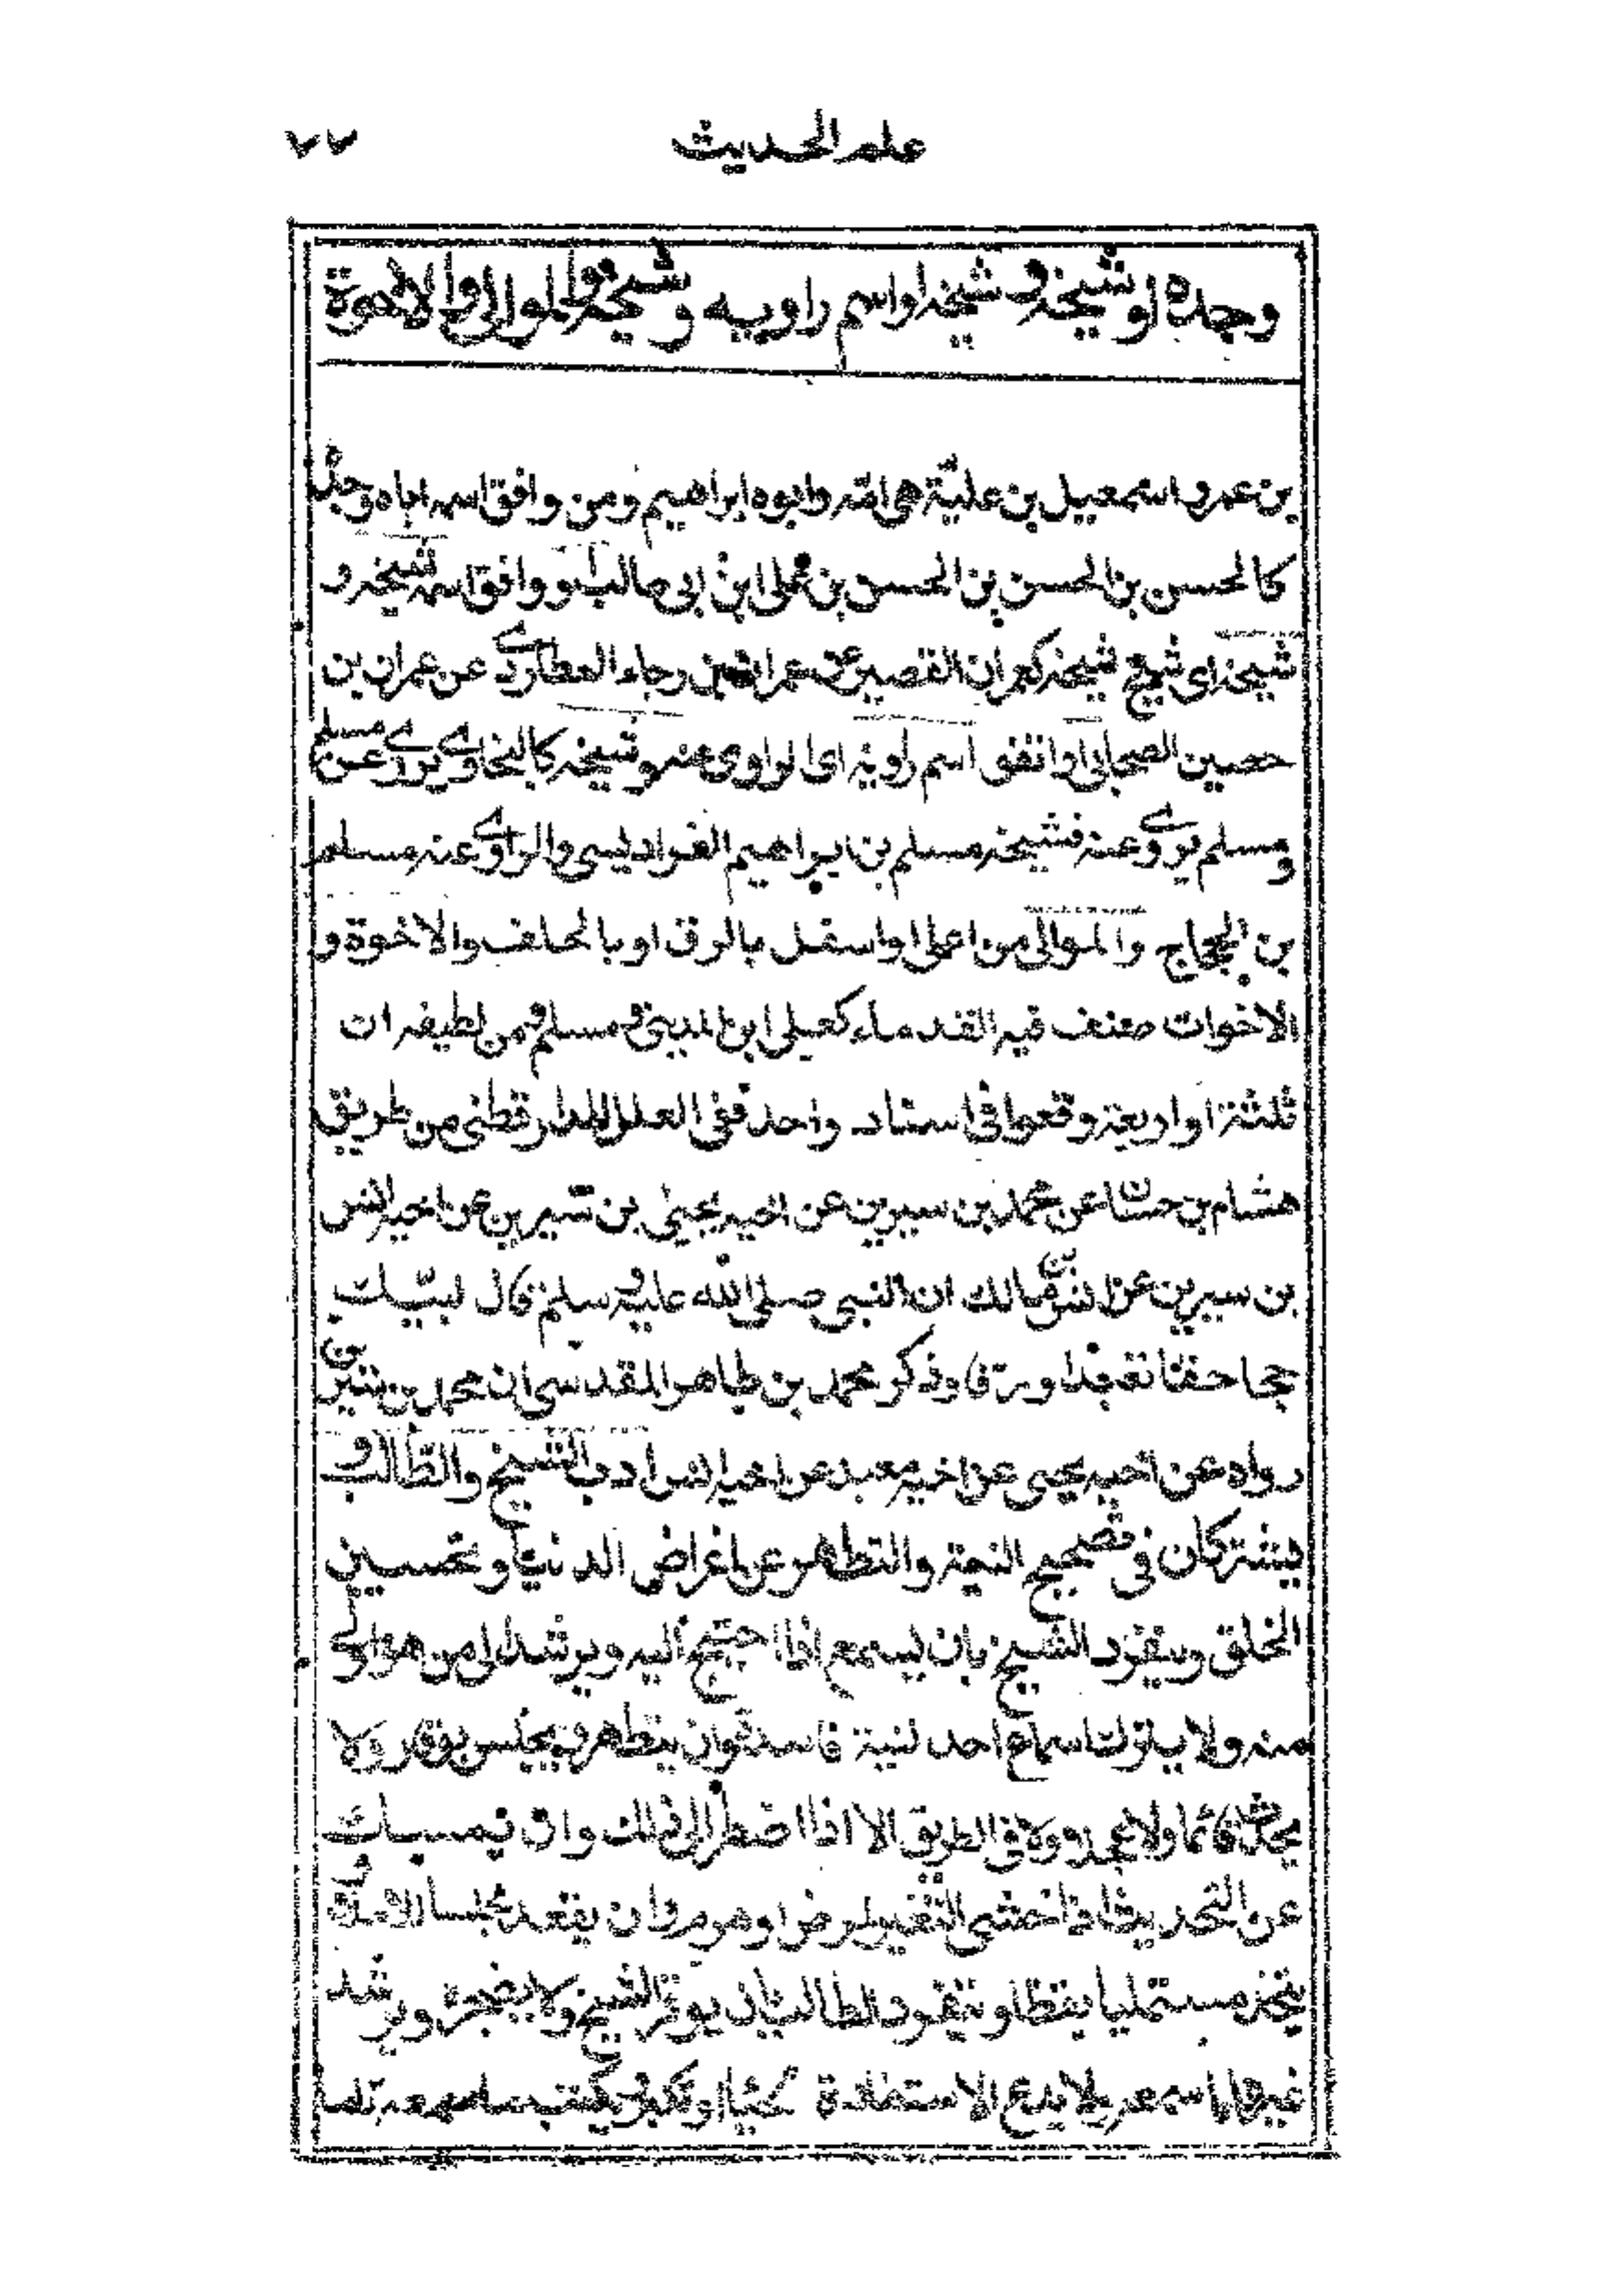 علم الحديث ٧٧
وجده او شيخه وشيخه او اسم راويه وشيخه والموالى والاخوة
بن عمر واسمعيل بن علية هى امه وابوه ابراهيم ومن وافق اسمه اباه وجده
كالحسن بن الحسن بن الحسن بن على ابن ابى طالب او وافق اسمه شيخه و
شيخه اى شيخ شيخه كعمران القصير عن عمران بن رجاء العطاردى عن عمران بن
حصين الصحابى او اتفق اسم راويه اى الراوى عنه وشيخه كالبخارى يروى عن مسلم
ومسلم يروى عنه فشيخه مسلم بن ابراهيم الفراديسى والراوى عنه مسلم
بن الحجاج والموالى من اعلى او اسفل بالرق او بالحلف والاخوة و
الاخوات صنف فيه القدماء كعلى ابن المدينى ومسلم فمن لطيفه ان
ثلثة او اربعة وقعوا فى اسناد واحد ففى العلل للدارقطنى من طريق
هشام بن حسان عن محمد بن سيرين عن اخيه يحيى بن سيرين عن اخيه انس
بن سيرين عن انس بن مالك ان النبى صلى الله عليه وسلم قال لبيك
حجا حقا تعبدا ورقا وذكر محمد بن طاهر المقدسى ان محمد بن سيرين
رواه عن اخيه يحيى عن اخيه معبد عن اخيه انس ادب الشيخ والطالب و
يشتركان فى تصحيح النية والتطهر عن اغراض الدنيا وتحسين
الخلق وينفرد الشيخ بان يسمع اذا احتيج اليه ويرشد الى من هو اولى
منه ولا يترك اسماع احد لنية فاسدة وان يتطهر ويجلس بوقار ولا
يحدث قائما ولا عجلا ولا فى الطريق الا اذا اضطر الى ذلك وان يمسك
عن التحديث اذا خشى التغير لمرض او هرم وان يقعد مجلسا للاملاء و
يتخذ مستمليا يقظا وينفرد الطالب بان يوقر الشيخ ولا يضجره ويرشد
غيره لما سمعه ولا يدع الاستفادة لحياء او تكبر ويكتب ما سمعه تاما